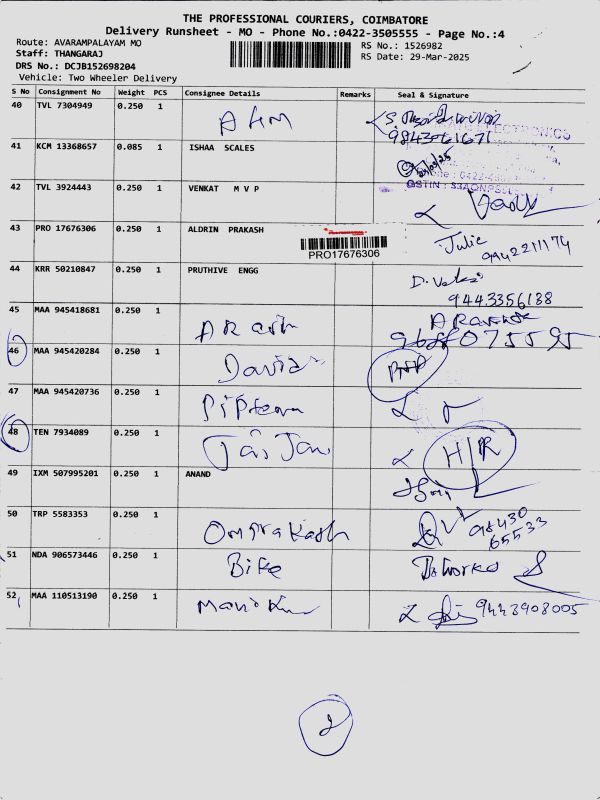 THE PROFESSIONAL COURIERS, COIMBATORE
Delivery Runsheet - MO - Phone No.:0422-3505555 - Page No.:4
Route: AVARAMPALAYAM MO
Staff: THANGARAJ
DRS No.: DCJB152698204
Vehicle: Two Wheeler Delivery
RS No.: 1526982
RS Date: 29-Mar-2025
S No Consignment No Weight PCS Consignee Details Remarks Seal & Signature
40 TVL 7304949 0.250 1
9843061671
41 KCM 13368657 0.085 1 ISHAA SCALES
42 TVL 3924443 0.250 1 VENKAT M V P
43 PRO 17676306 0.250 1 ALDRIN PRAKASH
PRO17676306
Julie
9942211174
44 KRR 50210847 0.250 1 PRUTHIVE ENGG
9443356188
45 MAA 945418681 0.250 1
46 MAA 945420284 0.250 1 David
47 MAA 945420736 0.250 1
48 TEN 7934089 0.250 1 H/R
49 IXM 507995201 0.250 1 ANAND
50 TRP 5583353 0.250 1 Omprakash
98430
65533
51 NDA 906573446 0.250 1 Bike
52 MAA 110513190 0.250 1 9443908005
2